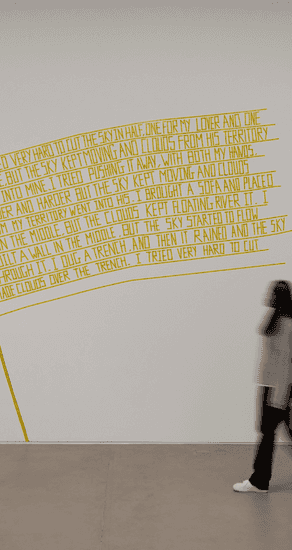 ED VERY HARD TO CUT THE SKY IN HALF, ONE FOR MY LOVER AND ONE
E BUT THE SKY KEPT MOVING AND CLOUDS FROM HIS TERRITORY
INTO MINE. I TRIED PUSHING IT AWAY, WITH BOTH MY HANDS,
ER AND HARDER BUT THE SKY KEPT MOVING AND CLOUDS
M MY TERRITORY WENT INTO HIS. I BROUGHT A SOFA AND PLACED
IN THE MIDDLE. BUT THE CLOUDS KEPT FLOATING OVER IT. I
UILT A WALL IN THE MIDDLE. BUT THE SKY STARTED TO FLOW
HROUGH IT. I DUG A TRENCH. AND THEN IT RAINED AND THE SKY
ADE CLOUDS OVER THE TRENCH. I TRIED VERY HARD TO CUT